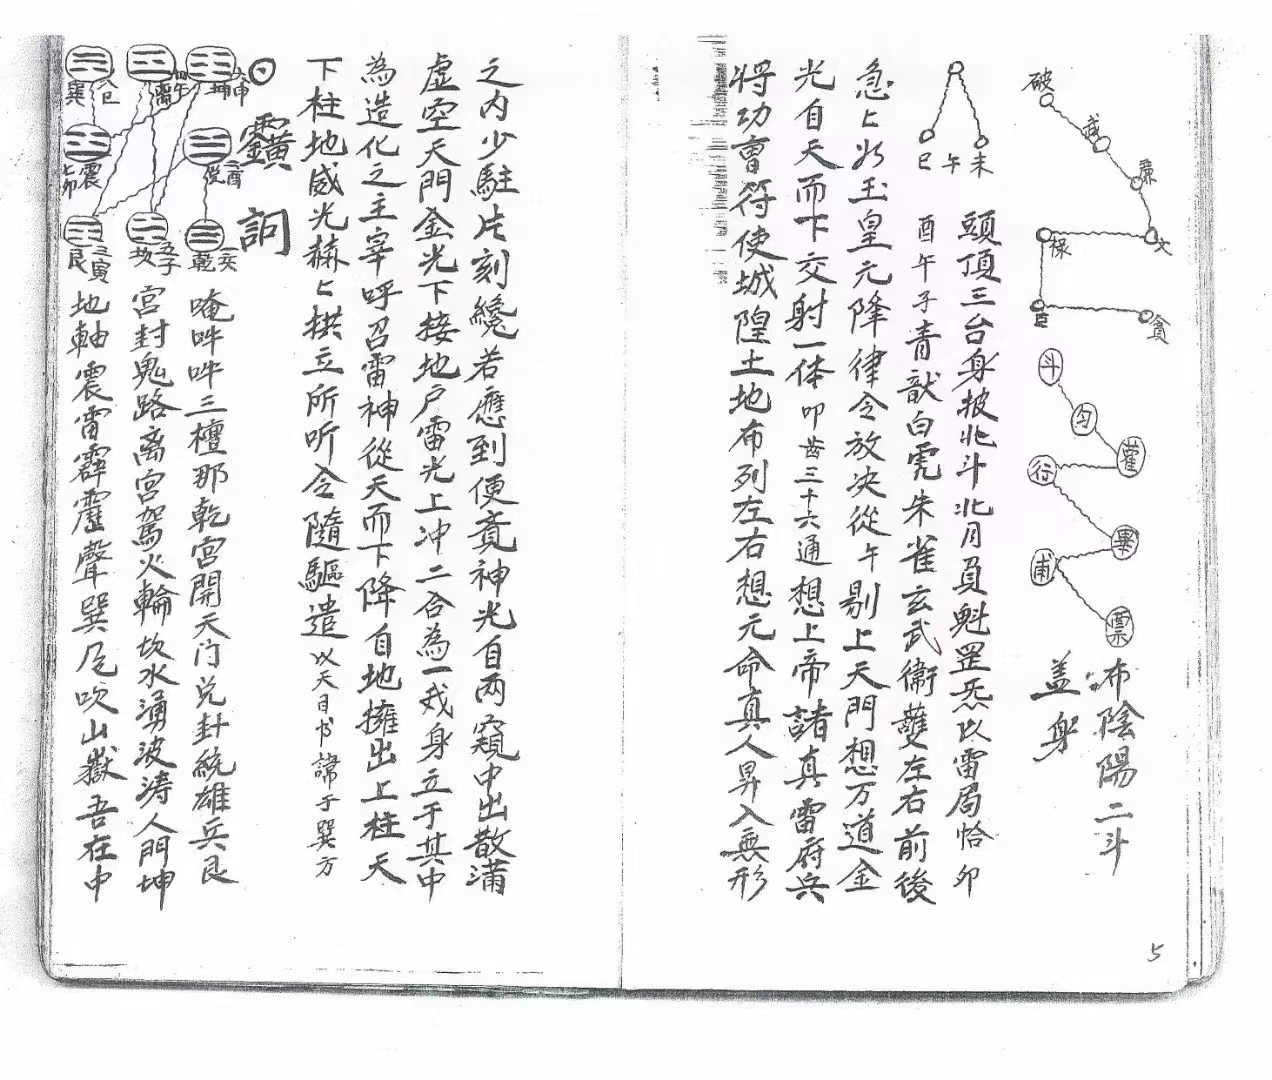 破
武
廉
文
祿
巨
貪
斗
勺
雚
行
畢
甫
票
布陰陽二斗
盖身
巳午未
頭頂三台身披北斗北月負魁罡炁以雷局恰卯
酉午子青獣白虎朱雀玄武衛護左右前後
急上次玉皇元降律令放決從午剔上天門想万道金
光自天而下交射一体叩齒三十六通想上帝諸真雷府兵
将功曹符使城隍土地布列左右想元命真人昇入無形
之内少駐片刻纔若應到便覔神光自两窺中出散满
虚空天門金光下接地户雷光上冲二合為一我身立于其中
為造化之主宰呼召雷神從天而下降自地擁出上柱天
下柱地威光赫上拱立所听令隨驅遣以天目书諱于巽方
詞
六申
坤
四午
離
八巳
巽
二酉
悦
七卯
震
一亥
乾
五子
坎
三寅
艮
唵吽吽三檀那乾宫開天门兑封統雄兵艮
宫封鬼路离宫駕火輪坎水湧波涛人門坤
地軸震雷霹靂聲巽凨吹山嶽吾在中
5